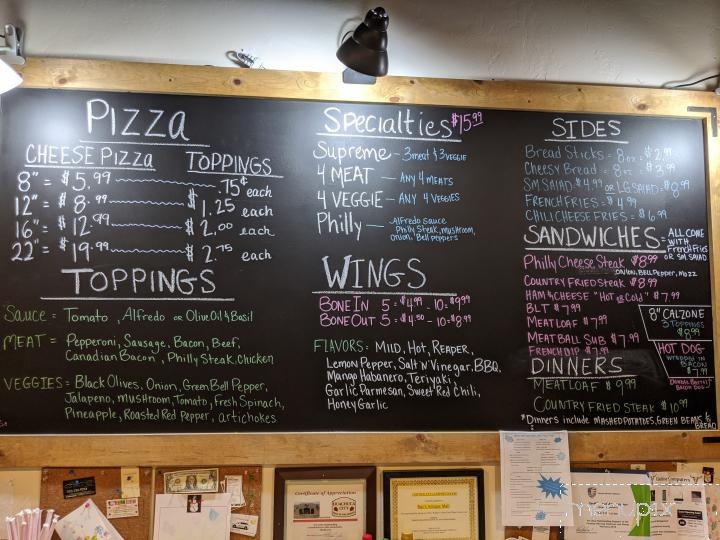 PIZZA
CHEESE PIZZA
TOPPINGS
8" = $5.99 .75¢ each
12" = $8.99 $1.25 each
16" = $12.99 $2.00 each
22" = $19.99 $2.75 each
TOPPINGS
SAUCE = Tomato, Alfredo or Olive Oil & Basil
MEAT = Pepperoni, Sausage, Bacon, Beef,
Canadian Bacon, Philly Steak, Chicken
VEGGIES = Black Olives, Onion, Green Bell Pepper,
Jalapeno, Mushroom, Tomato, Fresh Spinach,
Pineapple, Roasted Red Pepper, artichokes
Specialties $15.99
Supreme - 3 meat & 3 VEGGIE
4 MEAT - ANY 4 MEATS
4 VEGGIE - ANY 4 VEGGIES
Philly - Alfredo Sauce
Philly Steak, mushroom,
Onion, Bell peppers
WINGS
BONE IN 5 = $4.99 - 10 = $9.99
BONE OUT 5 = $4.50 - 10 = $8.99
FLAVORS: MILD, HOT, REAPER,
Lemon Pepper, Salt N Vinegar, BBQ,
Mango Habanero, Teriyaki,
Garlic Parmesan, Sweet Red Chili,
Honey Garlic
SIDES
Bread Sticks = 8oz = $2.99
Cheesy Bread = 8oz = $3.99
SM SALAD $4.99 or LG SALAD = $8.99
FRENCH FRIES = $4.99
CHILI CHEESE FRIES = $6.99
SANDWICHES - ALL COME
WITH
French Fries
or SM. SALAD
Philly Cheese Steak $8.99
ONION, BELL PEPPER, MOZZ
COUNTRY FRIED Steak $8.99
HAM & CHEESE "Hot or Cold" $7.99
BLT $7.99
MEATLOAF $7.99
MEATBALL SUB $7.99
FRENCH DIP $7.99
8" CALZONE
3 TOPPINGS
$8.99
HOT DOG
WRAPPED IN
BACON
$7.99
DINNERS
MEATLOAF $9.99
COUNTRY FRIED STEAK $10.99
*Dinners include MASHED POTATOES, GREEN BEANS &
BREAD
Certificate of Appreciation
HUACHUCA
CITY
menupix